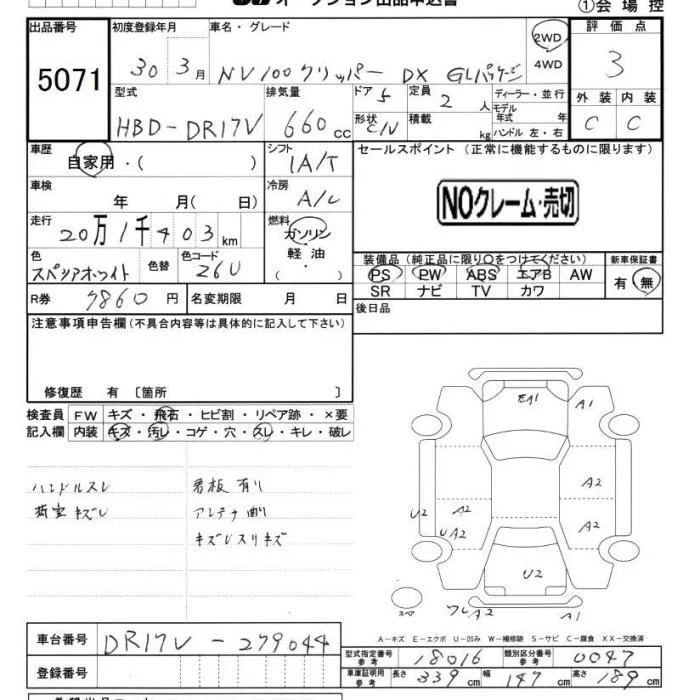 オークション出品申込書
①会場控
出品番号 初度登録年月 車名・グレード 評価点
5071 30 3月 NV100クリッパー DX GLパッケージ 2WD 4WD 3
型式 排気量 ドア 5 定員 2人 ディーラー・並行 外装 内装
HBD-DR17V 660cc 形状 C/V 積載 kg モデル年式 年 ハンドル 左・右 C C
車歴 シフト セールスポイント (正常に機能するものに限ります)
自家用・( ) IA/T
車検 冷房
年 月( 日) A/C NOクレーム・売切
走行 燃料
20万1千403km ガソリン 軽油・
色 色替 色コード 装備品(純正品に限り○をつけてください) 新車保証書
スペリアホワイト 26U PS PW ABS エアB AW 有・無
SR ナビ TV カワ
R券 7860円 名変期限 月 日 後日品
注意事項申告欄(不具合内容等は具体的に記入して下さい)
修復歴 有 〔箇所 〕
検査員 FW キズ・飛石・ヒビ割・リペア跡・×要
記入欄 内装 キズ・汚レ・コゲ・穴・スレ・キレ・破レ
ハンドルスレ 看板有り
荷室キズレ アンテナ曲り
キズレスリキズ
EA1 A1
A2
U2 A2 A2
UA2
U2
スペア フレA2 A1
A-キズ E-エクボ U-凹み W-補修跡 S-サビ C-腐食 XX-交換済
車台番号 DR17V-279044
型式指定番号 参考 18016 類別区分番号 参考 0047
登録番号 車庫証明用 参考 長さ 339cm 幅 147cm 高さ 189cm